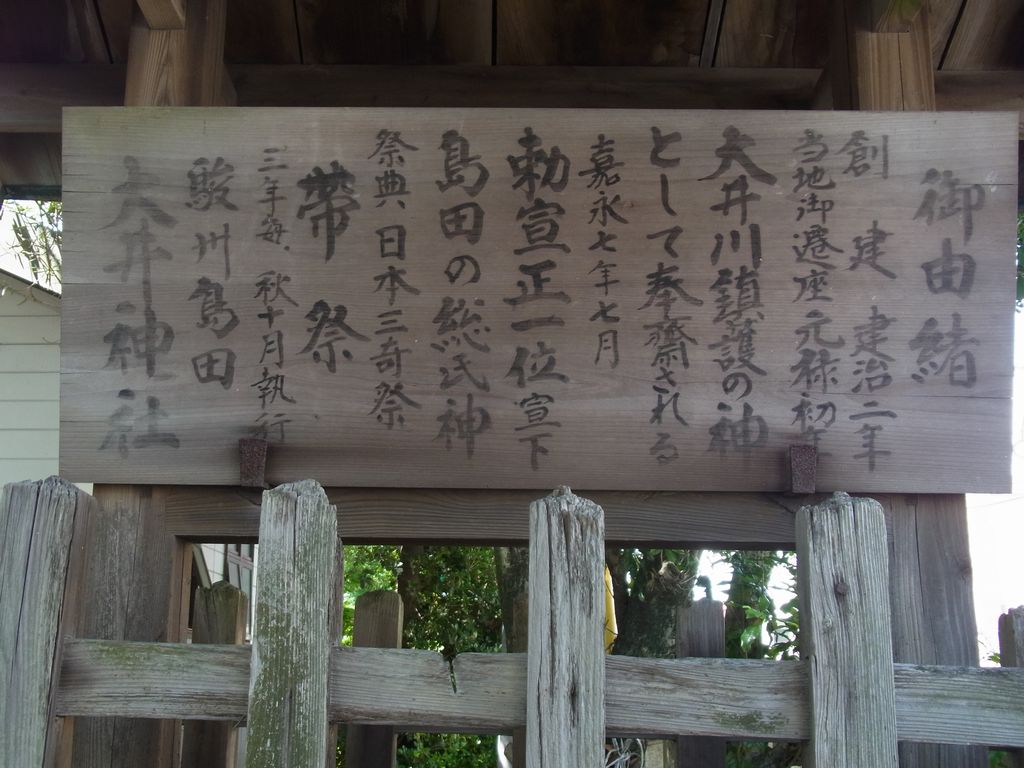 御由緒
創建 建治二年
当地御遷座元禄初年
大井川鎮護の神
として奉齋される
嘉永七年七月
勅宣正一位宣下
島田の総氏神
祭典 日本三奇祭
帶祭
三年毎、秋十月執行
駿州島田
大井神社